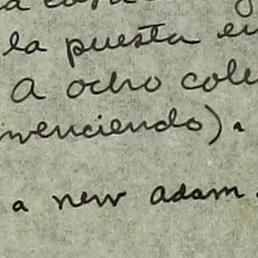 la puesta en
A ocho
venciendo).
a new adam.